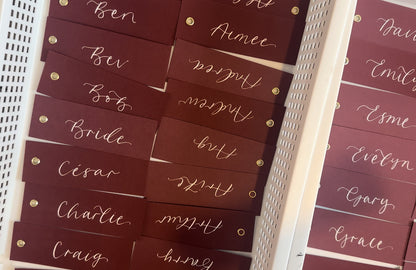 Ben
Bev
Bob
Bride
César
Charlie
Craig
Aimee
Andrea
Andrew
Ang
Anike
Arthur
Barry
David
Emily
Esme
Evelyn
Gary
Grace